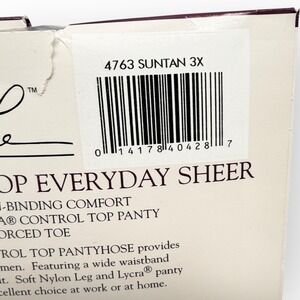 4763 SUNTAN 3X
0 14178 40428 7
™
OP EVERYDAY SHEER
-BINDING COMFORT
® CONTROL TOP PANTY
ORCED TOE
ROL TOP PANTYHOSE provides
men. Featuring a wide waistband
it. Soft Nylon Leg and Lycra® panty
xcellent choice at work or at home.